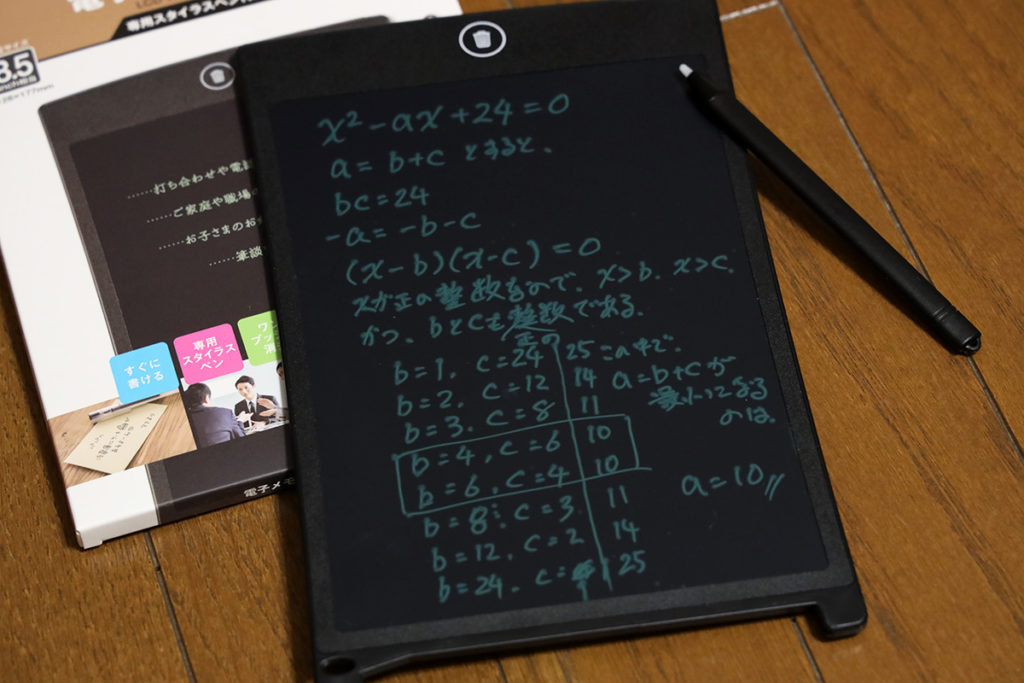 専用スタイラスペン
8.5
……打ち合わせや電話
……ご家庭や職場の
……お子さまのお
……筆談
すぐに
書ける
専用
スタイラス
ペン
電子メモ
x² - ax + 24 = 0
a = b+c とすると、
bc = 24
-a = -b-c
(x-b)(x-c) = 0
xが正の整数なので、x>b. x>c.
かつ、bとcも整数である。
正の
b=1. c=24 25 この中で、
b=2. c=12 14 a=b+cが
b=3. c=8 11 最小になる
のは、
b=4. c=6 10
b=6. c=4 10 a=10//
b=8. c=3 11
b=12. c=2 14
b=24. c=1 25